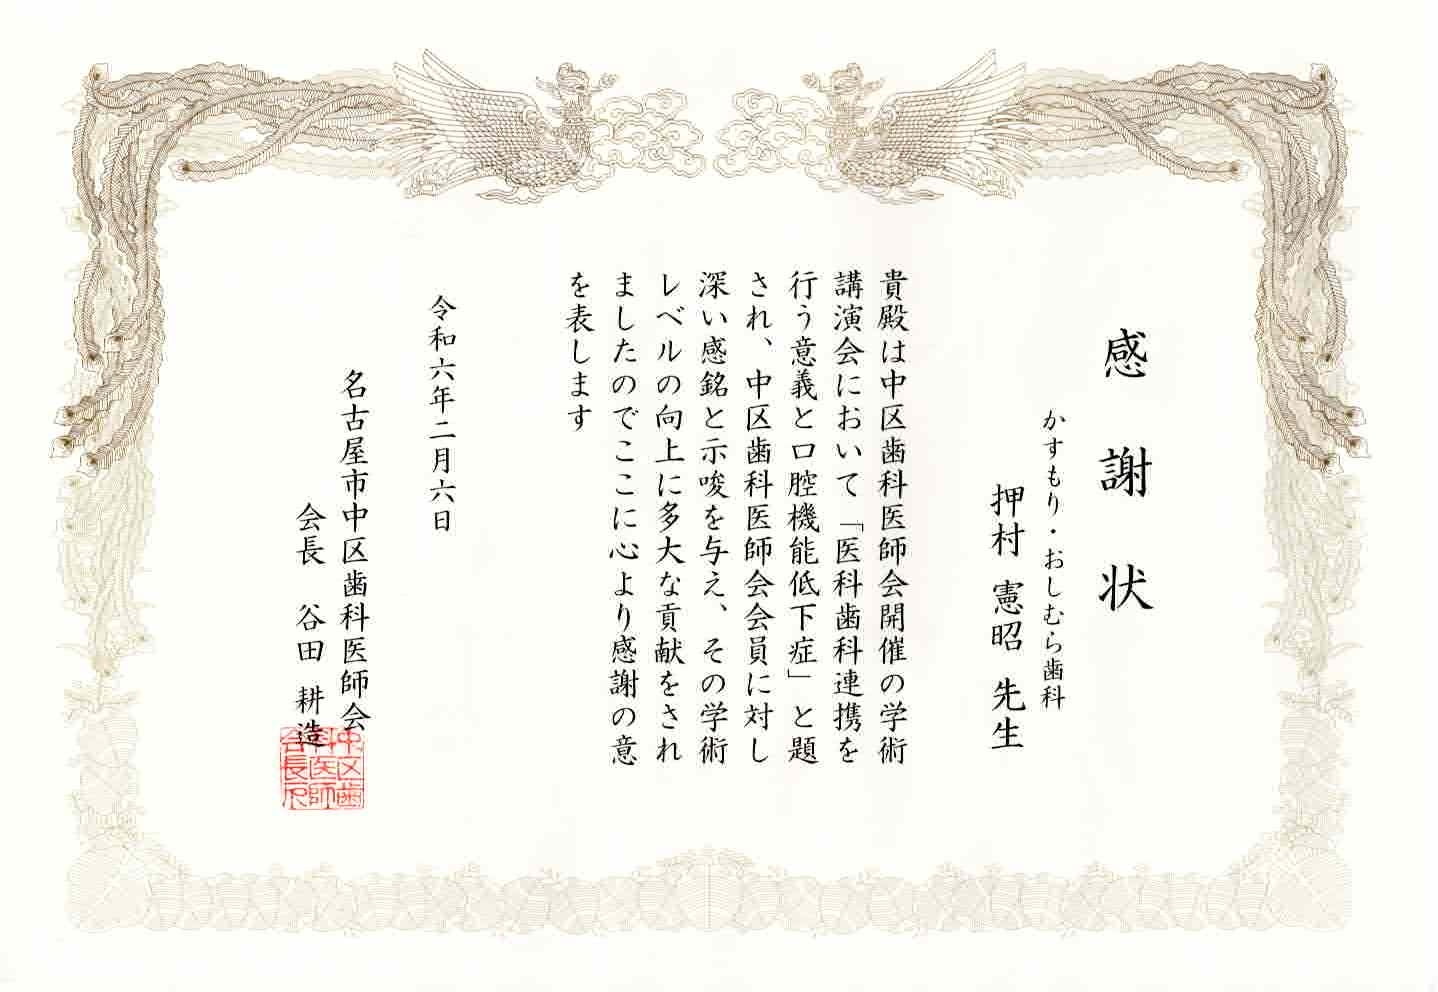 感謝状
かすもり・おしむら歯科
押村 憲昭 先生
貴殿は中区歯科医師会開催の学術
講演会において「医科歯科連携を
行う意義と口腔機能低下症」と題
され、中区歯科医師会会員に対し
深い感銘と示唆を与え、その学術
レベルの向上に多大な貢献をされ
ましたのでここに心より感謝の意
を表します
令和六年二月六日
名古屋市中区歯科医師会
会長 谷田 耕造
中区歯
科医師
会長印